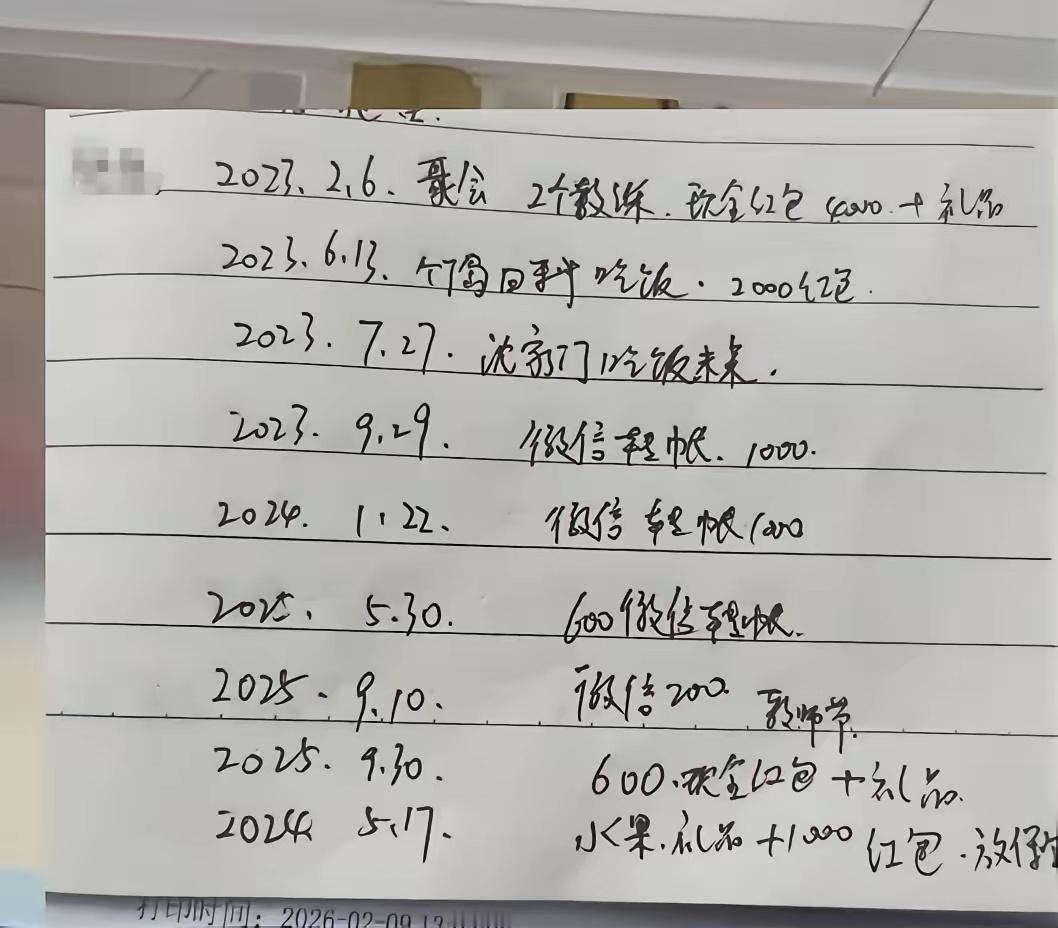 2023.2.6. 聚会 2个教练.现金红包 4000.+礼品
2023.6.13. 竹岛日料吃饭.2000红包.
2023.7.27.沈家门吃饭未果.
2023.9.29. 微信转帐.1000.
2024.1.22. 微信转帐1000
2025.5.30. 600微信转帐.
2025.9.10. 微信200.教师节.
2025.9.30. 600.现金红包+礼品.
2024.5.17. 水果.礼品+1000红包.放保
打印时间:2026-02-09 13